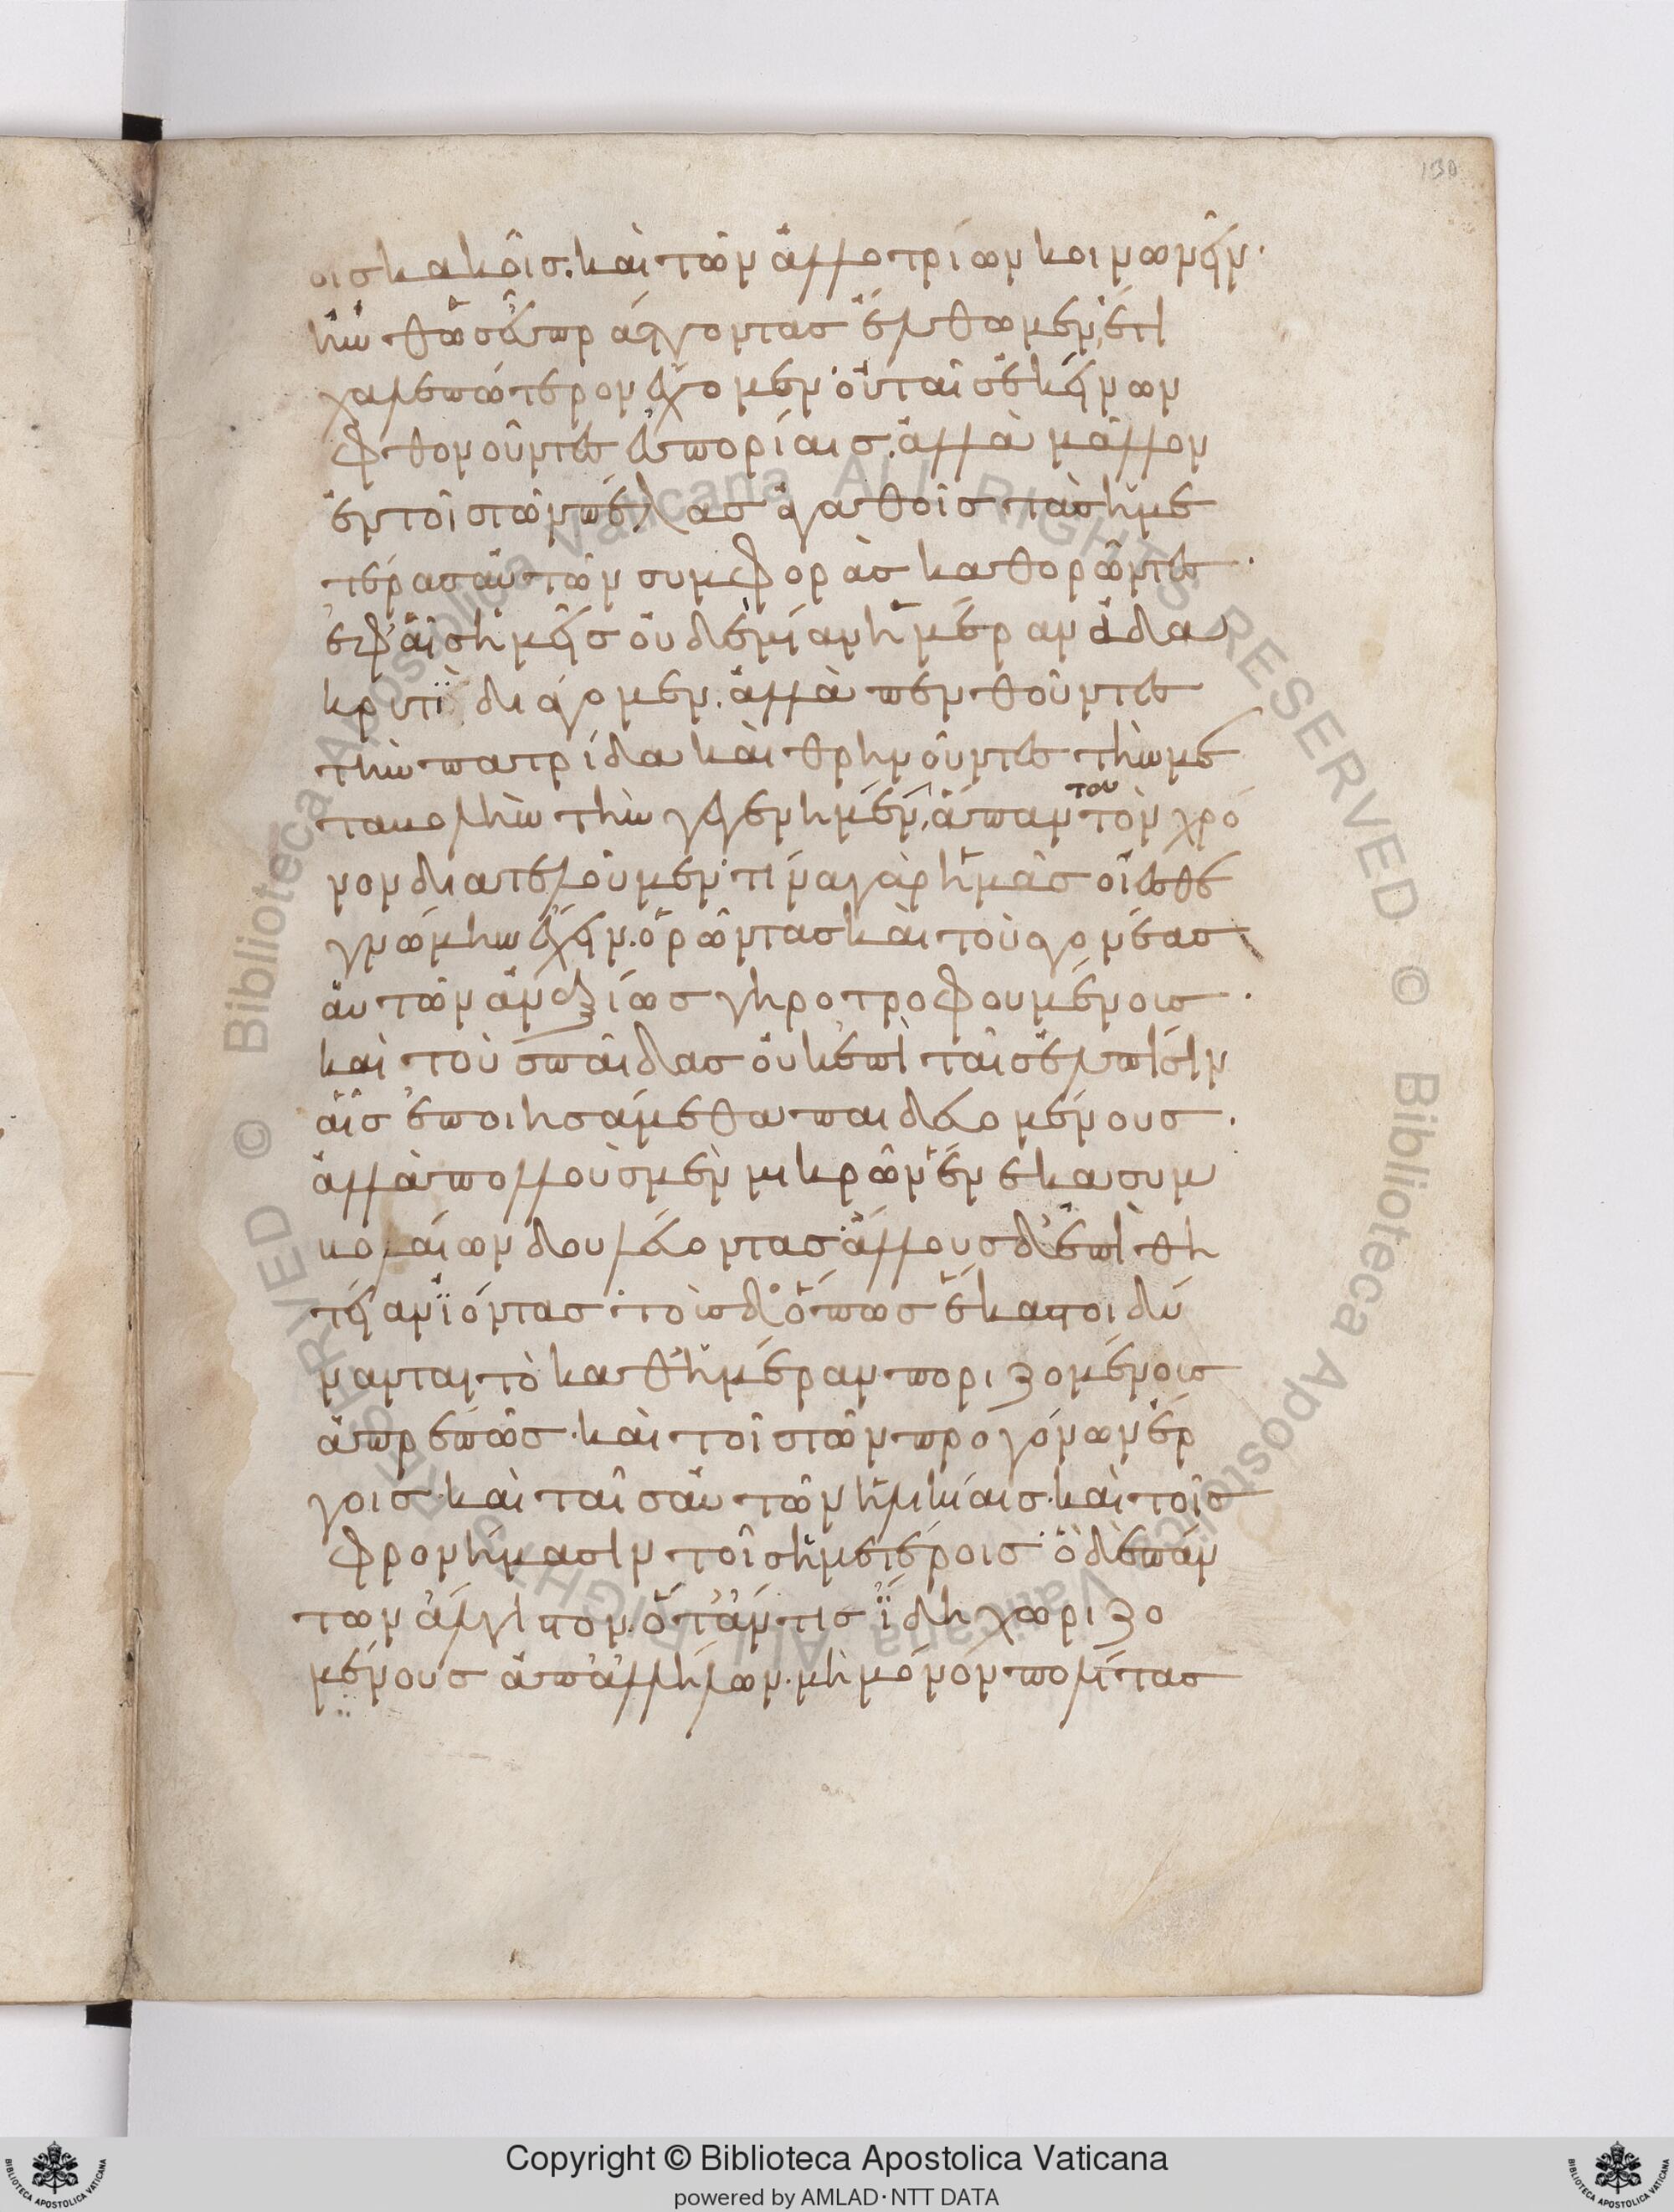 130
οις κακοῖς. καὶ τῶν ἀλλοτρίων κοινωνεῖν·
ἢν θ' ὡς εὖ πράττοντας ἔλθωμεν, ἔτι
χαλεπώτερον ἔχομεν· οὐ ταῖς ἐκείνων
φθονοῦντες εὐπορίαις. ἀλλὰ μᾶλλον
ἐν τοῖς τῶν πέλας ἀγαθοῖς τὰς ἡμε
τέρας αὐτῶν συμφορὰς καθορῶντες·
ἐφ' αἷς ἡμεῖς οὐδεμίαν ἡμέραν ἀδα
κρυτὶ διάγομεν. ἀλλὰ πενθοῦντες
τὴν πατρίδα καὶ θρηνοῦντες τὴν με
ταβολὴν τὴν γεγενημένην, ἅπαντα τὸν χρό
νον διατελοῦμεν· τίνα γὰρ ἡμᾶς οἴεσθε
γνώμην ἔχειν. ὁρῶντας καὶ τοὺς γονέας
αὐτῶν ἀναξίως γηροτροφουμένους·
καὶ τοὺς παῖδας οὐκ ἐπὶ ταῖς ἐλπίσιν
αἷς ἐποιησάμεθα παιδευομένους.
ἀλλὰ πολλοὺς μὲν μικρῶν ἕνεκα συμ
βολαίων δουλεύοντας· ἄλλους δ' ἐπὶ θη
τείαν ἰόντας· τοὺς δ' ὅπως ἕκαστοι δύ
νανται τὸ καθ' ἡμέραν ποριζομένους
ἀπρεπῶς· καὶ τοῖς τῶν προγόνων ἔρ
γοις· καὶ ταῖς αὐτῶν ἡλικίαις· καὶ τοῖς
φρονήμασιν τοῖς ἡμετέροις· ὃ δὲ πάν
των ἄλγιστον. ὅταν τις ἴδῃ χωριζο
μένους ἀπ' ἀλλήλων. μὴ μόνον πολίτας
Copyright © Biblioteca Apostolica Vaticana
powered by AMLAD · NTT DATA